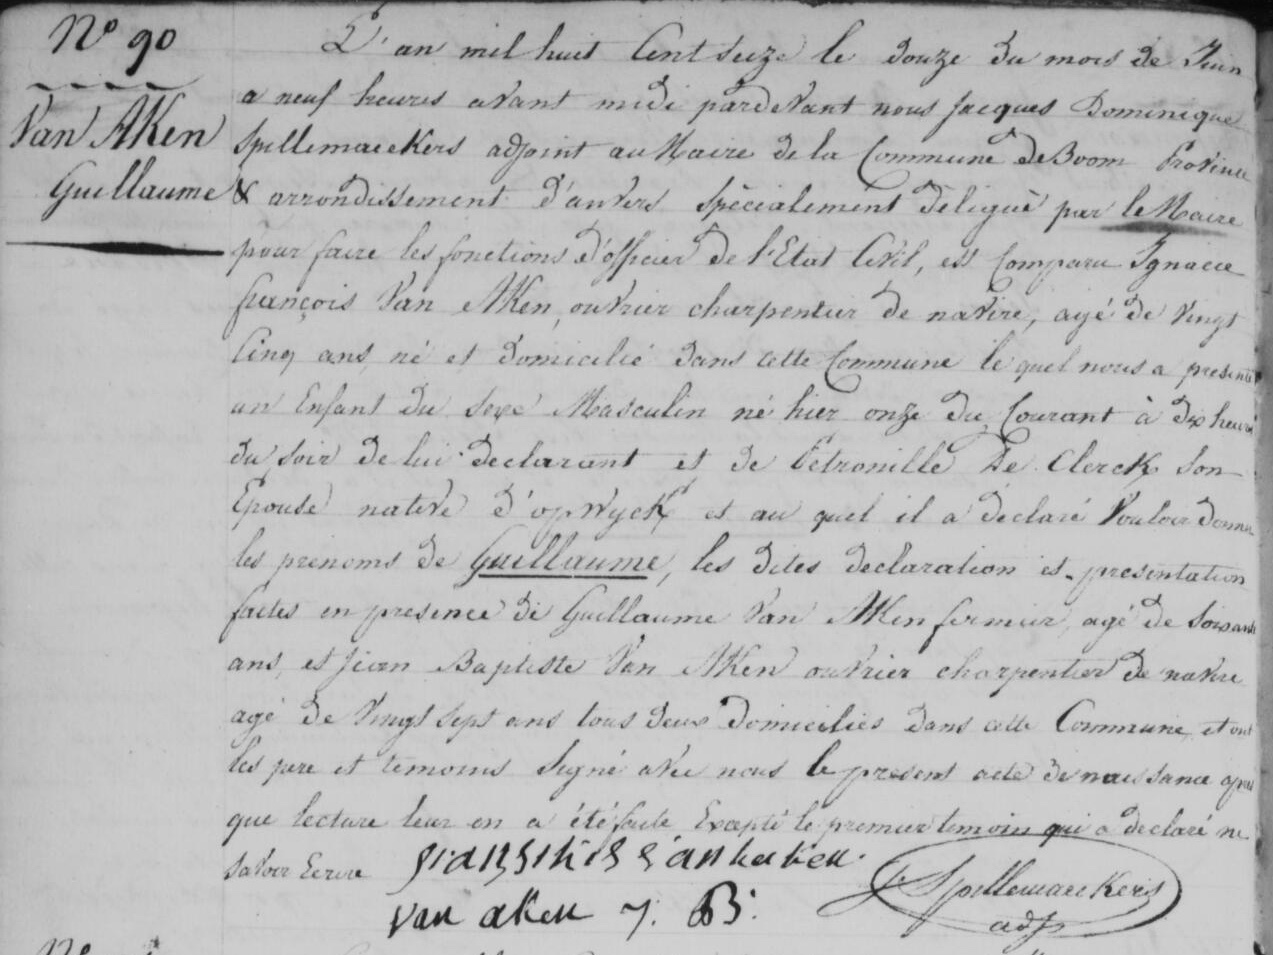 N° 90
Van Aken
Guillaume
L'an mil huit Cent seize le douze du mois de Juin
a neuf heures avant midi pardevant nous Jacques Dominique
Spillemaeckers adjoint au Maire de la Commune de Boom Province
& arrondissement d'anvers spécialement déligué par le Maire
pour faire les fonctions d'officier de l'Etat Civil, est Comparu Ignace
françois Van Aken, ouvrier charpentier de navire, agé de vingt
Cinq ans, né et domicilié dans cette Commune le quel nous a presenté
un Enfant du sexe Masculin né hier onze du Courant à dix heures
du soir de lui declarant et de Petronille De Clerck son
Epouse native d'opwyck et au quel il a déclaré Vouloir donner
les prenoms de Guillaume, les dites declaration et presentation
faites en presence de Guillaume Van Aken fermier, agé de Soixante
ans, et Jean Baptiste Van Aken ouvrier charpentier de navire
agé de Vingt sept ans tous deux Domiciliés dans cette Commune, et ont
les pere et temoins signé avec nous le present acte de naissance après
que lecture leur en a été faite Excepté le premier temoin qui a declaré ne
savoir Ecrire
van aken J. B.
Spillemaeckers
adjt